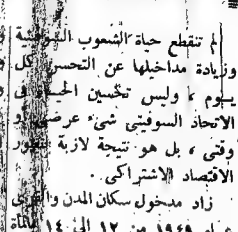 لم تنقطع حياة الشعوب السوفيتية
وزيادة مداخيلها عن التحسن كل
يوم ، وليس تحسين الحياة في
الاتحاد السوفيتي شيء عرضي او
وقتي ، بل هو نتيجة لازبة لتطور
الاقتصاد الاشتراكي .
زاد مدخول سكان المدن والقرى
عام ١٩٤٩ من ١٢ الى ١٤ بالمئة